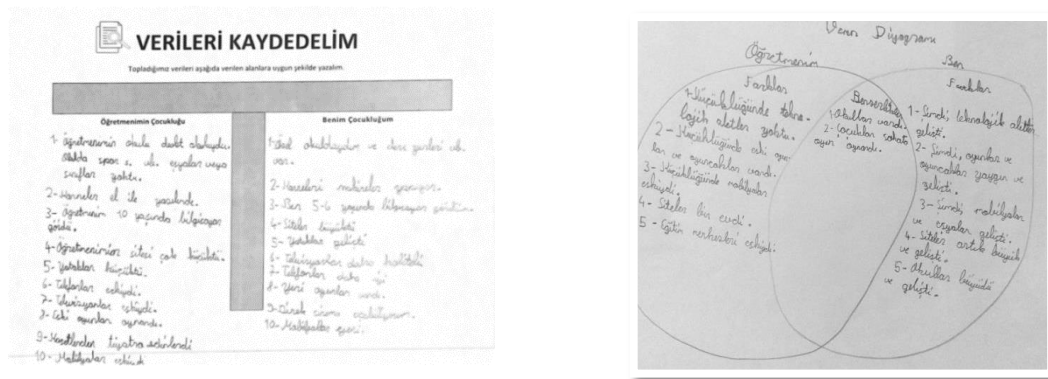 VERİLERİ KAYDEDELİM
Topladığımız verileri aşağıda verilen alanlara uygun şekilde yazalım.
Öğretmenimin Çocukluğu
1- Öğretmenimin okulu devlet okuluydu.
Okulda spor s. vb. eşyalar veya
sınıflar yoktu.
2- Karneler el ile yazılırdı.
3- Öğretmenim 10 yaşında bilgisayar
gördü.
4- Öğretmenimin sitesi çok küçüktü.
5- Yataklar küçüktü.
6- Telefonlar eskiydi.
7- Televizyonlar eskiydi.
8- Eski oyunlar oynandı.
9- Kasetlerden tiyatro
10- Mobilyalar eskiydi
Benim Çocukluğum
1- Özel okuldaydım ve vb.
var.
2- Karneleri makineler yazıyor.
3- Ben 5-6 yaşında bilgisayar gördüm.
4- Siteler büyüktü
5- Yataklar gelişti
6- Televizyonlar daha kaliteli
7- Telefonlar daha iyi
8- Yeni oyunlar vardı.
9- Direk sinema
10- Mobilyalar yeni.
Venn Diyagramı
Öğretmenim
Farklar
1- Küçüklüğünde tekno-
lojik aletler yoktu.
2- Küçüklüğünde eski oyun-
lar ve oyuncaklar vardı.
3- Küçüklüğünde mobilyalar
eskiydi.
4- Siteler bir evdi.
5- Eğitim merkezleri eskiydi.
Benzerlikler
1- Okullar vardı.
2- Çocuklar sokak
oyun oynardı.
Ben
Farklar
1- Şimdi teknolojik aletler
gelişti.
2- Şimdi, oyunlar ve
oyuncaklar yaygın ve
gelişti.
3- Şimdi mobilyalar
ve eşyalar gelişti.
4- Siteler artık büyük
ve gelişti.
5- Okullar büyüdü
ve gelişti.